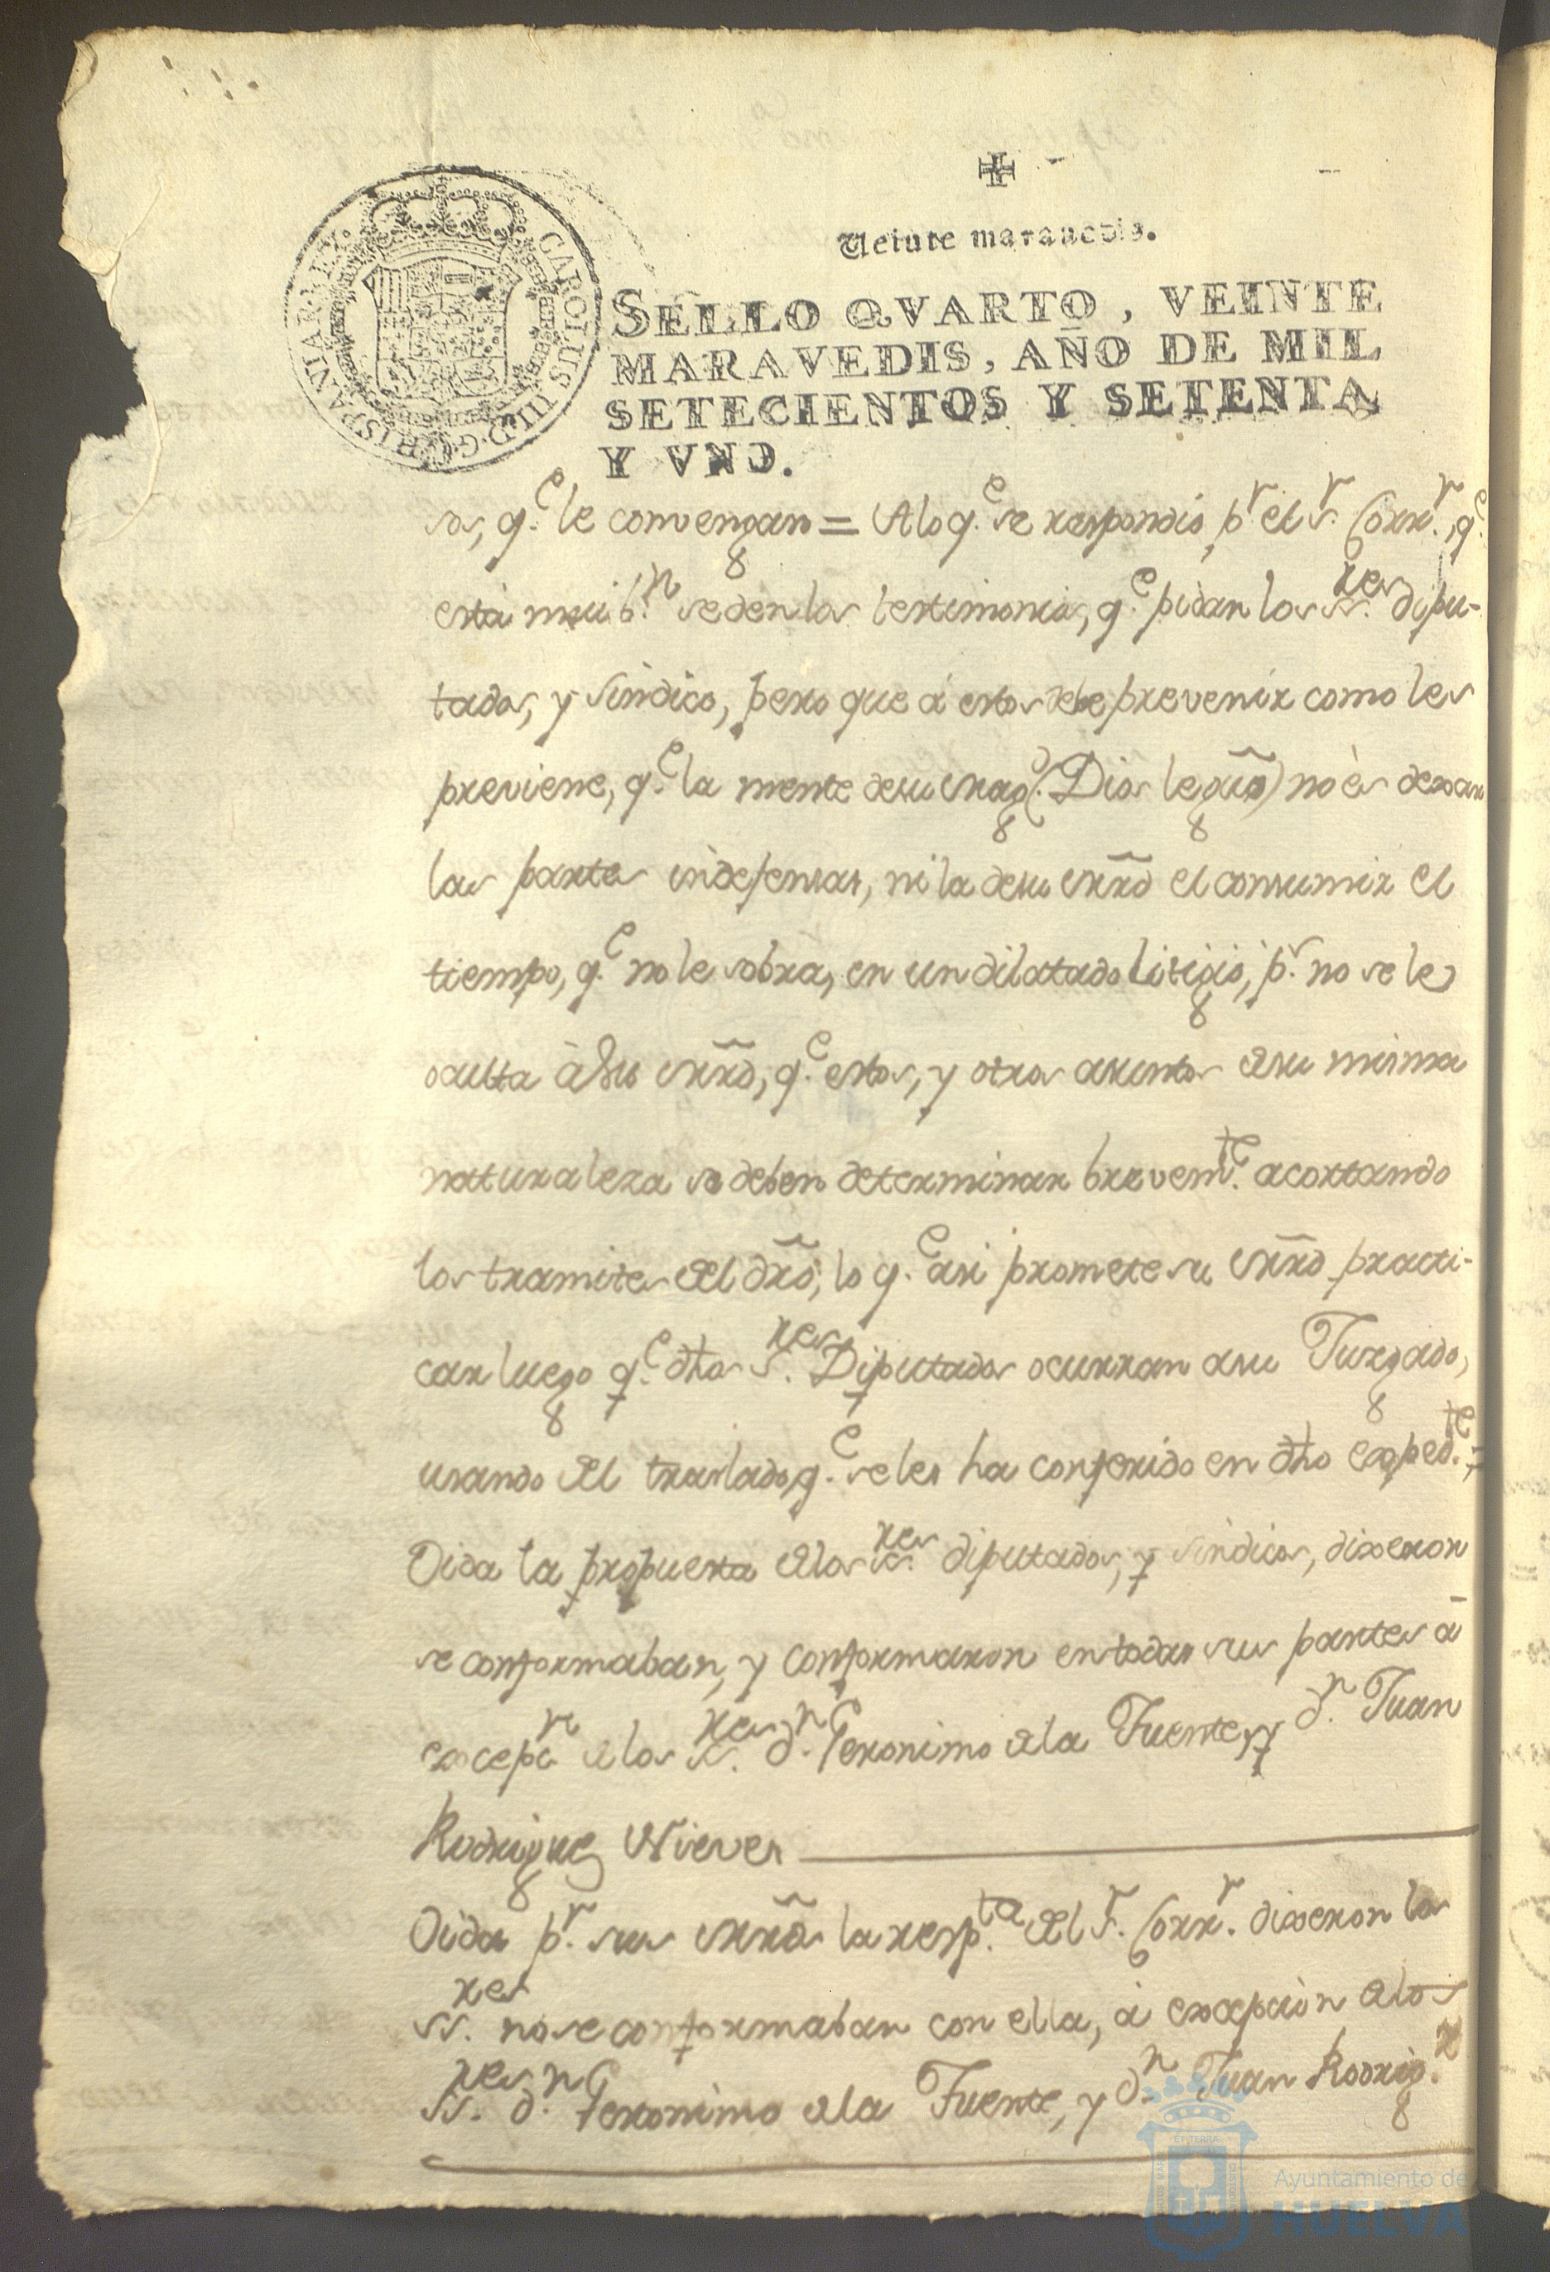 Veinte maravedis.
CAROLUS III D. G. HISPANIAR. REX.
SELLO QVARTO, VEINTE
MARAVEDIS, AÑO DE MIL
SETECIENTOS Y SETENTA
Y VNO.
q.e le convengan = A lo q.e se respondió p.r el s.r Corr.r, q.e
està mui b.n se den los testimonios, q.e pidan los ss.res dipu-
tados, y sindico, pero que á estos debe prevenir como les
previene, q.e la mente de su Mag.d (Dios le gũe) no ès dexar
las partes indefensas, ni la de su mrd̃ el consumir el
tiempo, q.e no le sobra, en un dilatado Litigio, p.r no se le
oculta à Su mrd̃, q.e estos, y otros asuntos de su misma
naturaleza se deben determinar brevem.te acortando
los tramites del dr̃o; lo q.e asi promete su mrd̃ practi-
car luego q.e dhos s.res Diputados ocurran a su Juzgado,
usando del traslado, q.e se les ha conferido en dho exped.te =
Oida la propuesta de los ss.res diputados, y sindicos, dixeron
se conformaban, y conformaron en todas sus partes à
excepn de los ss.res d.n Geronimo de la Fuente, y d.n Juan
Rodriguez Nieves
Oida p.r sus mrd̃s la resp.ta del s.r Corr.r dixeron los
ss.res no se conformaban con ella, à excepciòn de los
ss.res d.n Geronimo de la Fuente, y d.n Juan Rodrig.z
Ayuntamiento de
HUELVA